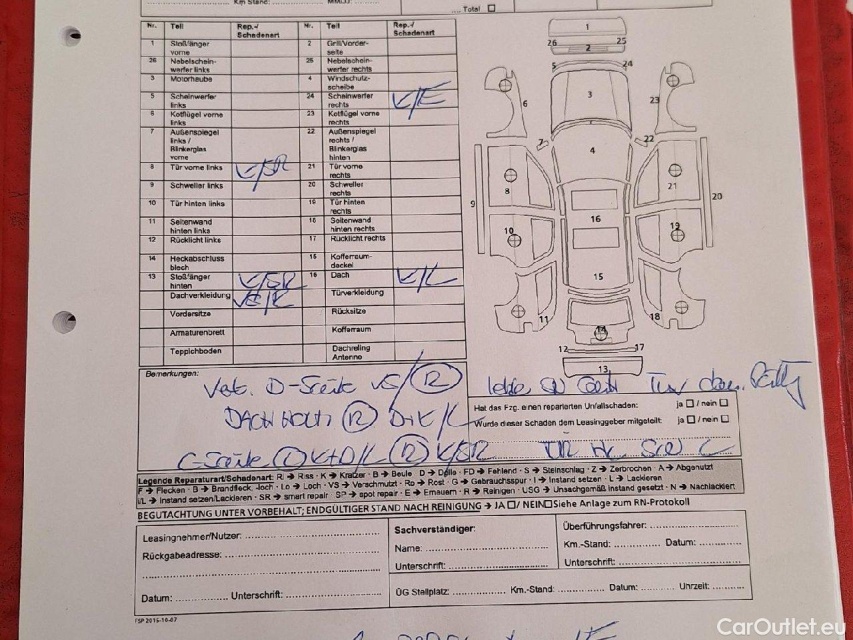 Total
Nr. Teil Rep.-/ Schadenart Nr. Teil Rep.-/ Schadenart
1 Stoßfänger vorne 2 Grill/Vorderseite
26 Nebelscheinwerfer links 25 Nebelscheinwerfer rechts
3 Motorhaube 4 Windschutzscheibe
5 Scheinwerfer links 24 Scheinwerfer rechts K/E
6 Kotflügel vorne links 23 Kotflügel vorne rechts
7 Außenspiegel links / Blinkerglas vorne 22 Außenspiegel rechts / Blinkerglas hinten
8 Tür vorne links K/SR 21 Tür vorne rechts
9 Schweller links 20 Schweller rechts
10 Tür hinten links 19 Tür hinten rechts
11 Seitenwand hinten links 18 Seitenwand hinten rechts
12 Rücklicht links 17 Rücklicht rechts
14 Heckabschlussblech 15 Kofferraumdeckel
13 Stoßfänger hinten K/SR 16 Dach K/L
Dachverkleidung VS/R Türverkleidung
Vordersitze Rücksitze
Armaturenbrett Kofferraum
Teppichboden Dachreling Antenne
1
26 25
2
5 24
3
6 23
7 22
4
8 21
9 20
16
10 19
15
11 18
14
12 17
13
Bemerkungen:
Hat das Fzg. einen reparierten Unfallschaden: ja / nein
Wurde dieser Schaden dem Leasinggeber mitgeteilt: ja / nein
Legende Reparaturart/Schadenart: Ri → Riss · K → Kratzer · B → Beule D → Delle · FD → Fehlend · S → Steinschlag · Z → Zerbrochen · A → Abgenutzt
F → Flecken · B → Brandfleck, -loch · Lo → Loch · VS → Verschmutzt · Ro → Rost · G → Gebrauchsspur · I → Instand setzen · L → Lackieren
I/L → Instand setzen/Lackieren · SR → smart repair · SP → spot repair · E → Erneuern · R → Reinigen · USG → Unsachgemäß instand gesetzt · N → Nachlackiert
BEGUTACHTUNG UNTER VORBEHALT; ENDGÜLTIGER STAND NACH REINIGUNG → JA / NEIN Siehe Anlage zum RN-Protokoll
Leasingnehmer/Nutzer:
Rückgabeadresse:
Datum: Unterschrift:
Sachverständiger:
Name:
Unterschrift:
Überführungsfahrer:
Km.-Stand: Datum:
Unterschrift:
ÜG Stellplatz: Km.-Stand: Datum: Uhrzeit:
FSP 2015-10-07
CarOutlet.eu